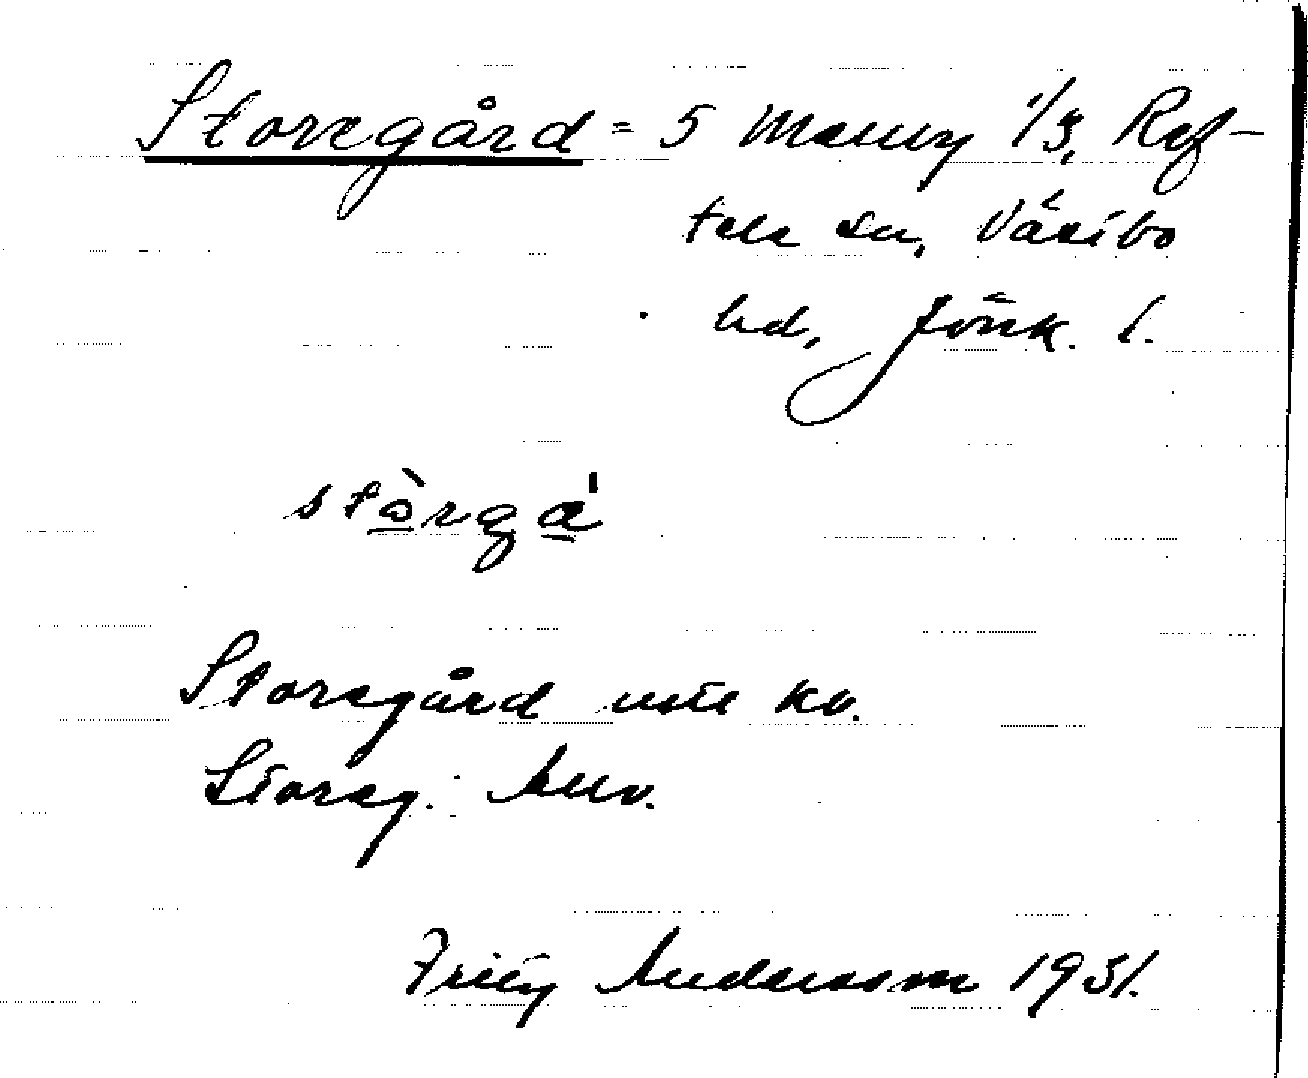 Storegård = 5 Mauny 1/3, Ref-
tele sn, Västbo
hd, Jönk. l.
stòrgá
Storegård uttl kv.
Storeg. Anv.
Fritz Andersson 1931.